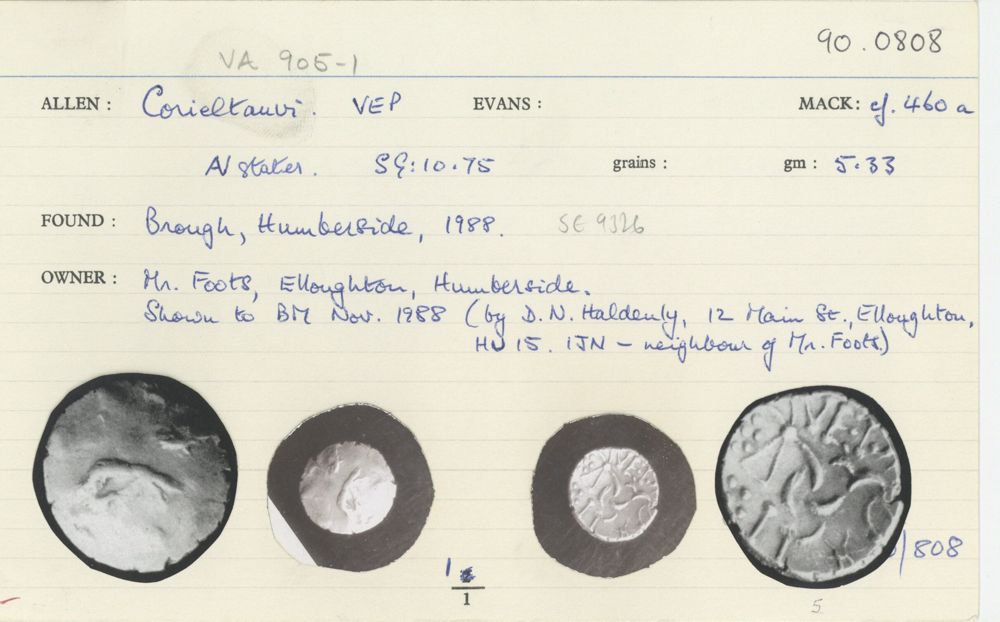 90.0808
VA 905-1
ALLEN : Corieltauvi. VEP EVANS : MACK: cf. 460 a
AV stater. SG:10.75 grains : gm : 5.33
FOUND : Brough, Humberside, 1988. SE 9326
OWNER : Mr. Foots, Elloughton, Humberside.
Shown to BM Nov. 1988 (by D.N. Haldenly, 12 Main St., Elloughton,
HU 15. 1JN – neighbour of Mr. Foots)
/808
1
1
5